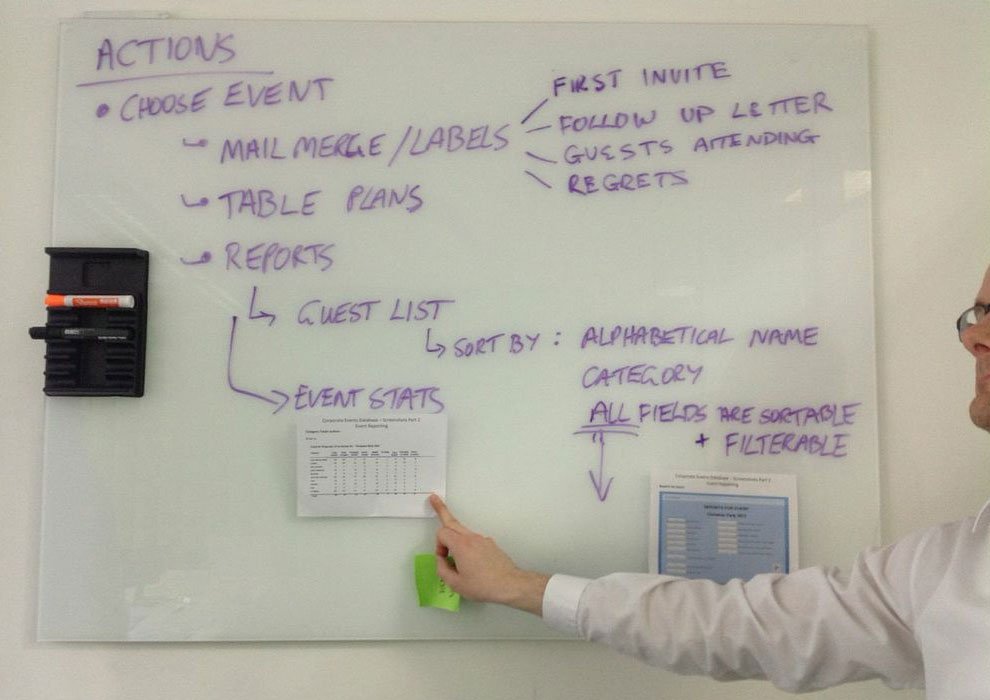 ACTIONS
• CHOOSE EVENT
MAIL MERGE / LABELS
FIRST INVITE
FOLLOW UP LETTER
GUESTS ATTENDING
REGRETS
TABLE PLANS
REPORTS
GUEST LIST
SORT BY : ALPHABETICAL NAME
CATEGORY
ALL FIELDS ARE SORTABLE
+ FILTERABLE
EVENT STATS
Corporate Events Database – Screenshots Part 2
Event Reporting
Corporate Events Database – Screenshots Part 2
Event Reporting
REPORTS FOR EVENT